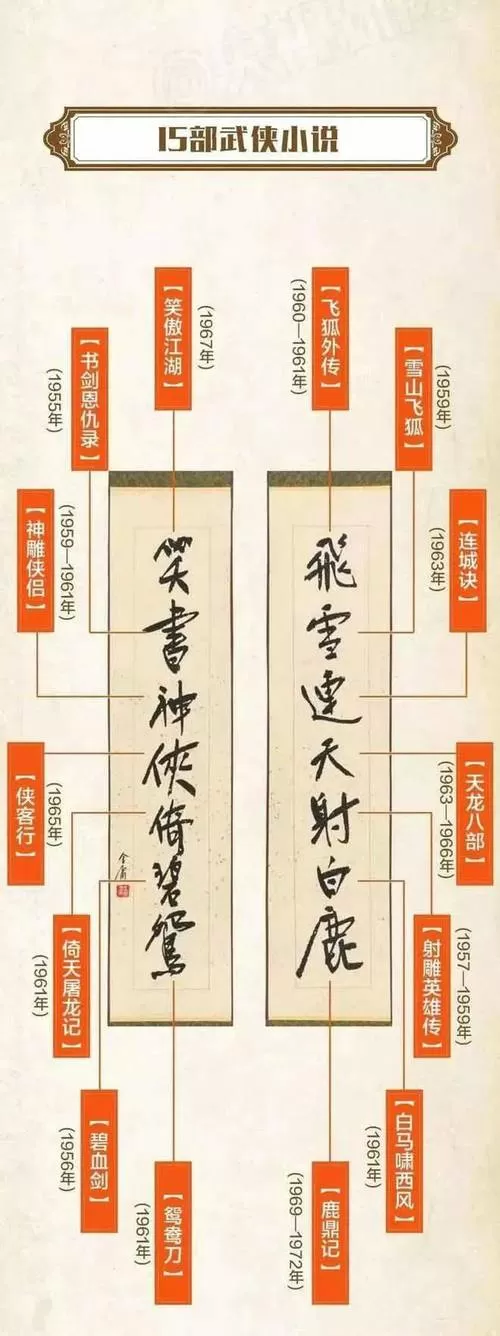 15部武侠小说
飞雪连天射白鹿
笑书神侠倚碧鸳
金庸
【飞狐外传】
(1960—1961年)
【雪山飞狐】
(1959年)
【连城诀】
(1963年)
【天龙八部】
(1963—1966年)
【射雕英雄传】
(1957—1959年)
【白马啸西风】
(1961年)
【鹿鼎记】
(1969—1972年)
【笑傲江湖】
(1967年)
【书剑恩仇录】
(1955年)
【神雕侠侣】
(1959—1961年)
【侠客行】
(1965年)
【倚天屠龙记】
(1961年)
【碧血剑】
(1956年)
【鸳鸯刀】
(1961年)